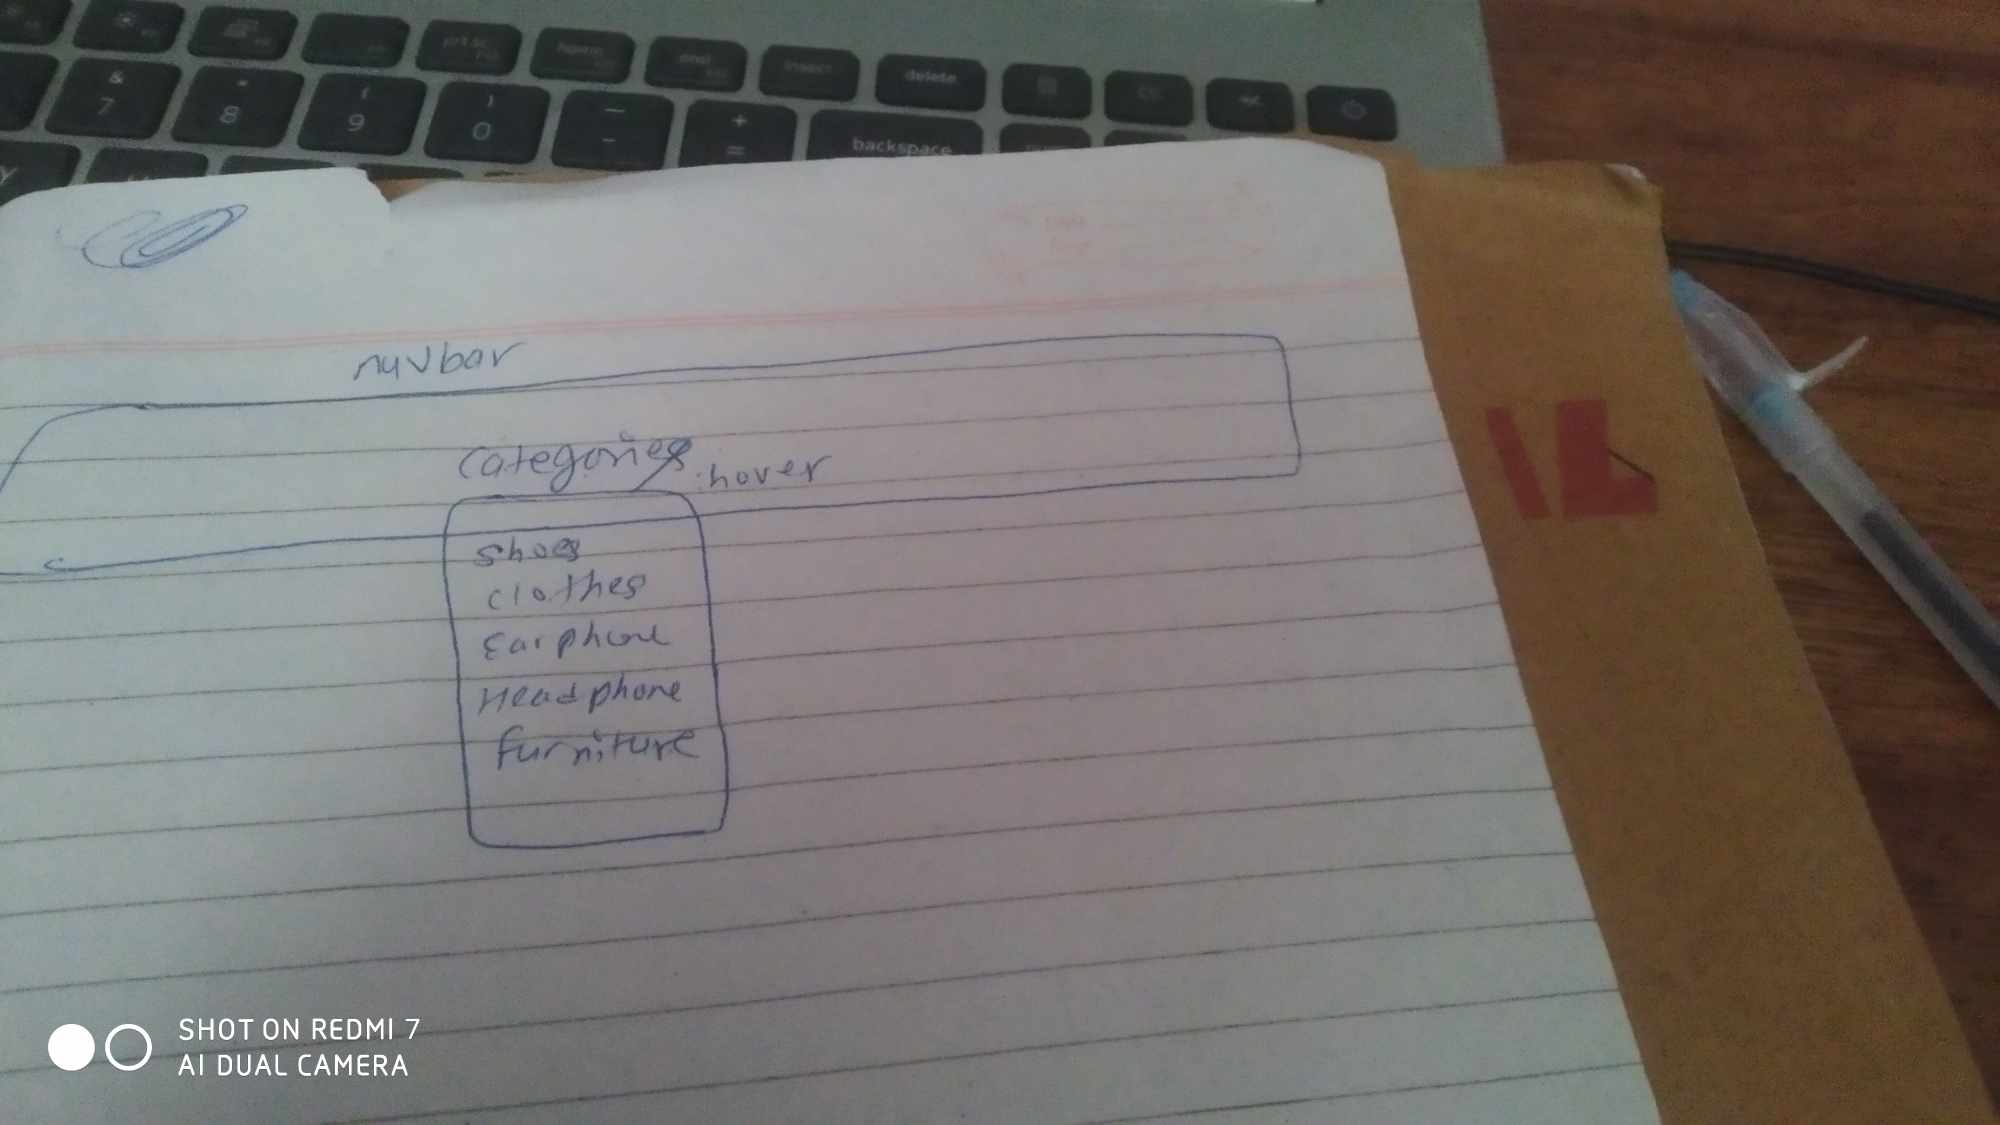 prt sc
home
end
insert
delete
&
7
*
8
(
9
)
0
—
-
+
=
backspace
Y
navbar
categories
:hover
shoes
clothes
Earphone
Headphone
furniture
SHOT ON REDMI 7
AI DUAL CAMERA